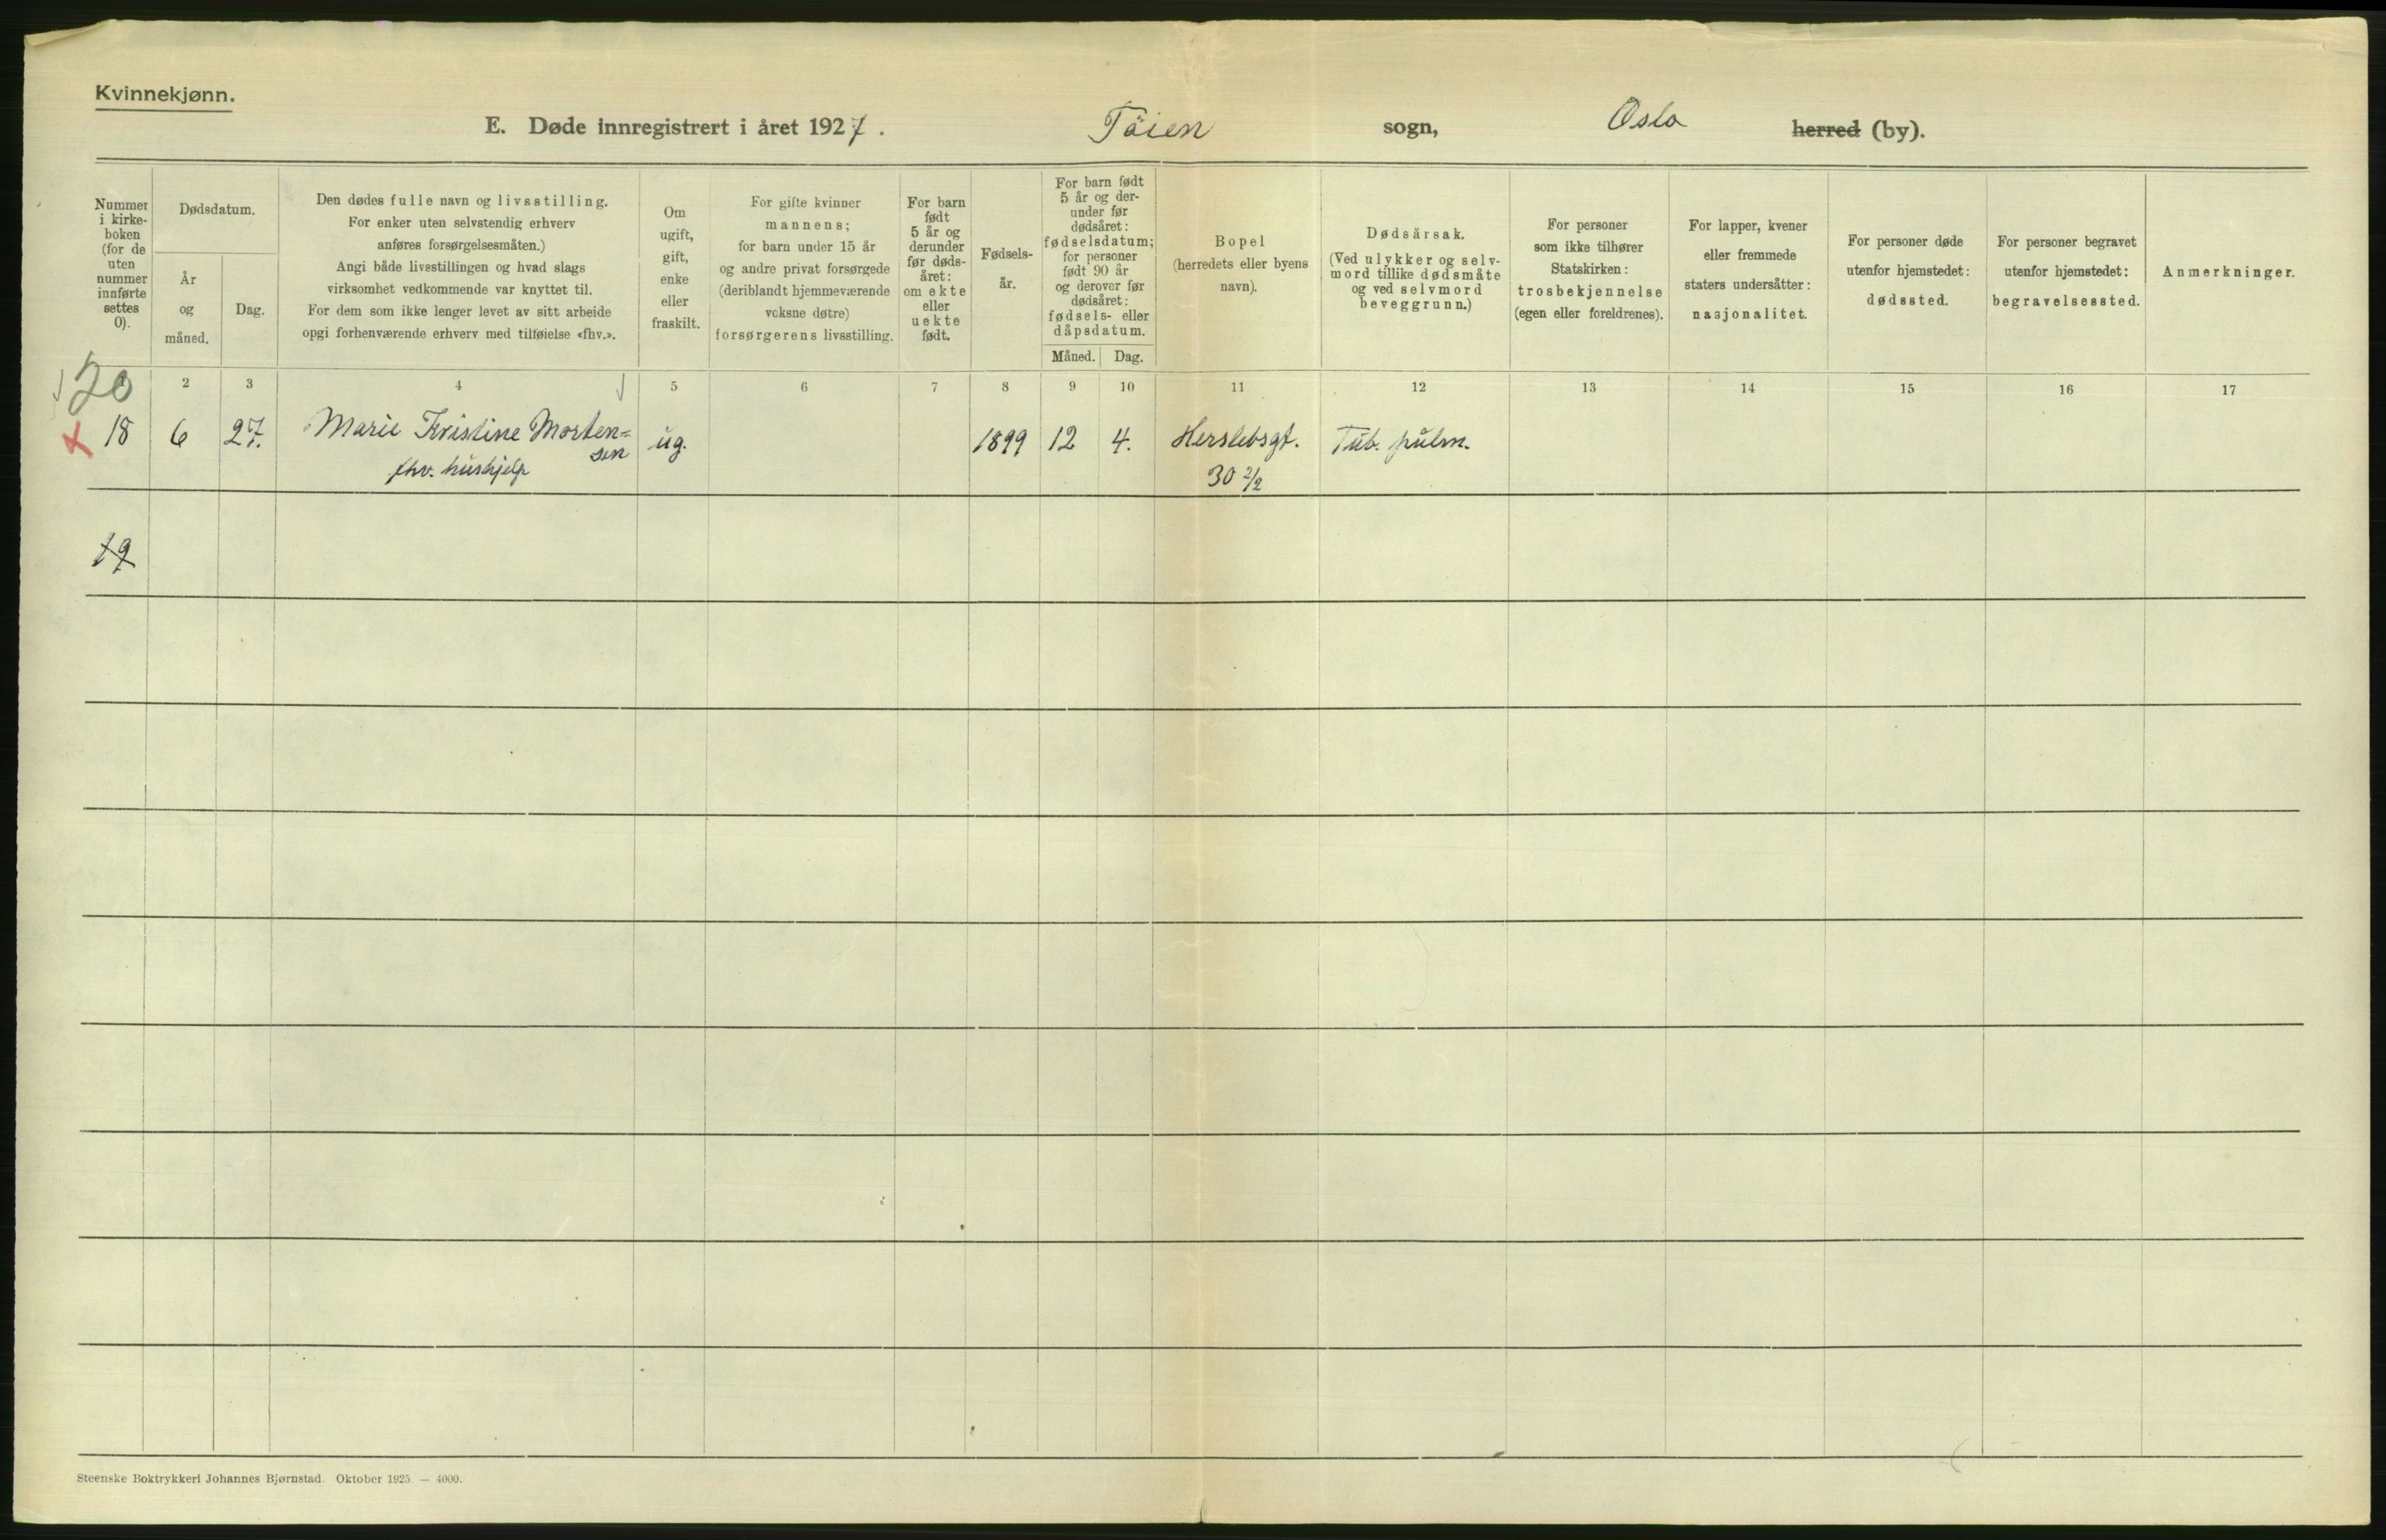 Kvinnekjønn.
E. Døde innregistrert i året 1927. Töien sogn, Oslo herred (by).
Nummer
i kirke-
boken
(for de
uten
nummer
innførte
settes
0).
Dødsdatum.
År
og
måned.
Dag.
Den dødes fulle navn og livsstilling.
For enker uten selvstendig erhverv
anføres forsørgelsesmåten.)
Angi både livsstillingen og hvad slags
virksomhet vedkommende var knyttet til.
For dem som ikke lenger levet av sitt arbeide
opgi forhenværende erhverv med tilføielse «fhv.».
Om
ugift,
gift,
enke
eller
fraskilt.
For gifte kvinner
mannens;
for barn under 15 år
og andre privat forsørgede
(deriblandt hjemmeværende
voksne døtre)
forsørgerens livsstilling.
For barn
født
5 år og
derunder
før døds-
året:
om ekte
eller
uekte
født.
Fødsels-
år.
For barn født
5 år og der-
under før
dødsåret:
fødselsdatum;
for personer
født 90 år
og derover før
dødsåret:
fødsels- eller
dåpsdatum.
Måned. Dag.
Bopel
(herredets eller byens
navn).
Dødsårsak.
(Ved ulykker og selv-
mord tillike dødsmåte
og ved selvmord
beveggrunn.)
For personer
som ikke tilhører
Statskirken:
trosbekjennelse
(egen eller foreldrenes).
For lapper, kvener
eller fremmede
staters undersåtter:
nasjonalitet.
For personer døde
utenfor hjemstedet:
dødssted.
For personer begravet
utenfor hjemstedet:
begravelsessted.
Anmerkninger.
20 2 3 4 5 6 7 8 9 10 11 12 13 14 15 16 17
18 6 27. Marie Kristine Morten= ug. 1899 12 4. Herslebsgt. Tub. pulm.
sen
fhv. hushjelp 30 2/2
19
Steenske Boktrykkeri Johannes Bjørnstad. Oktober 1925. — 4000.